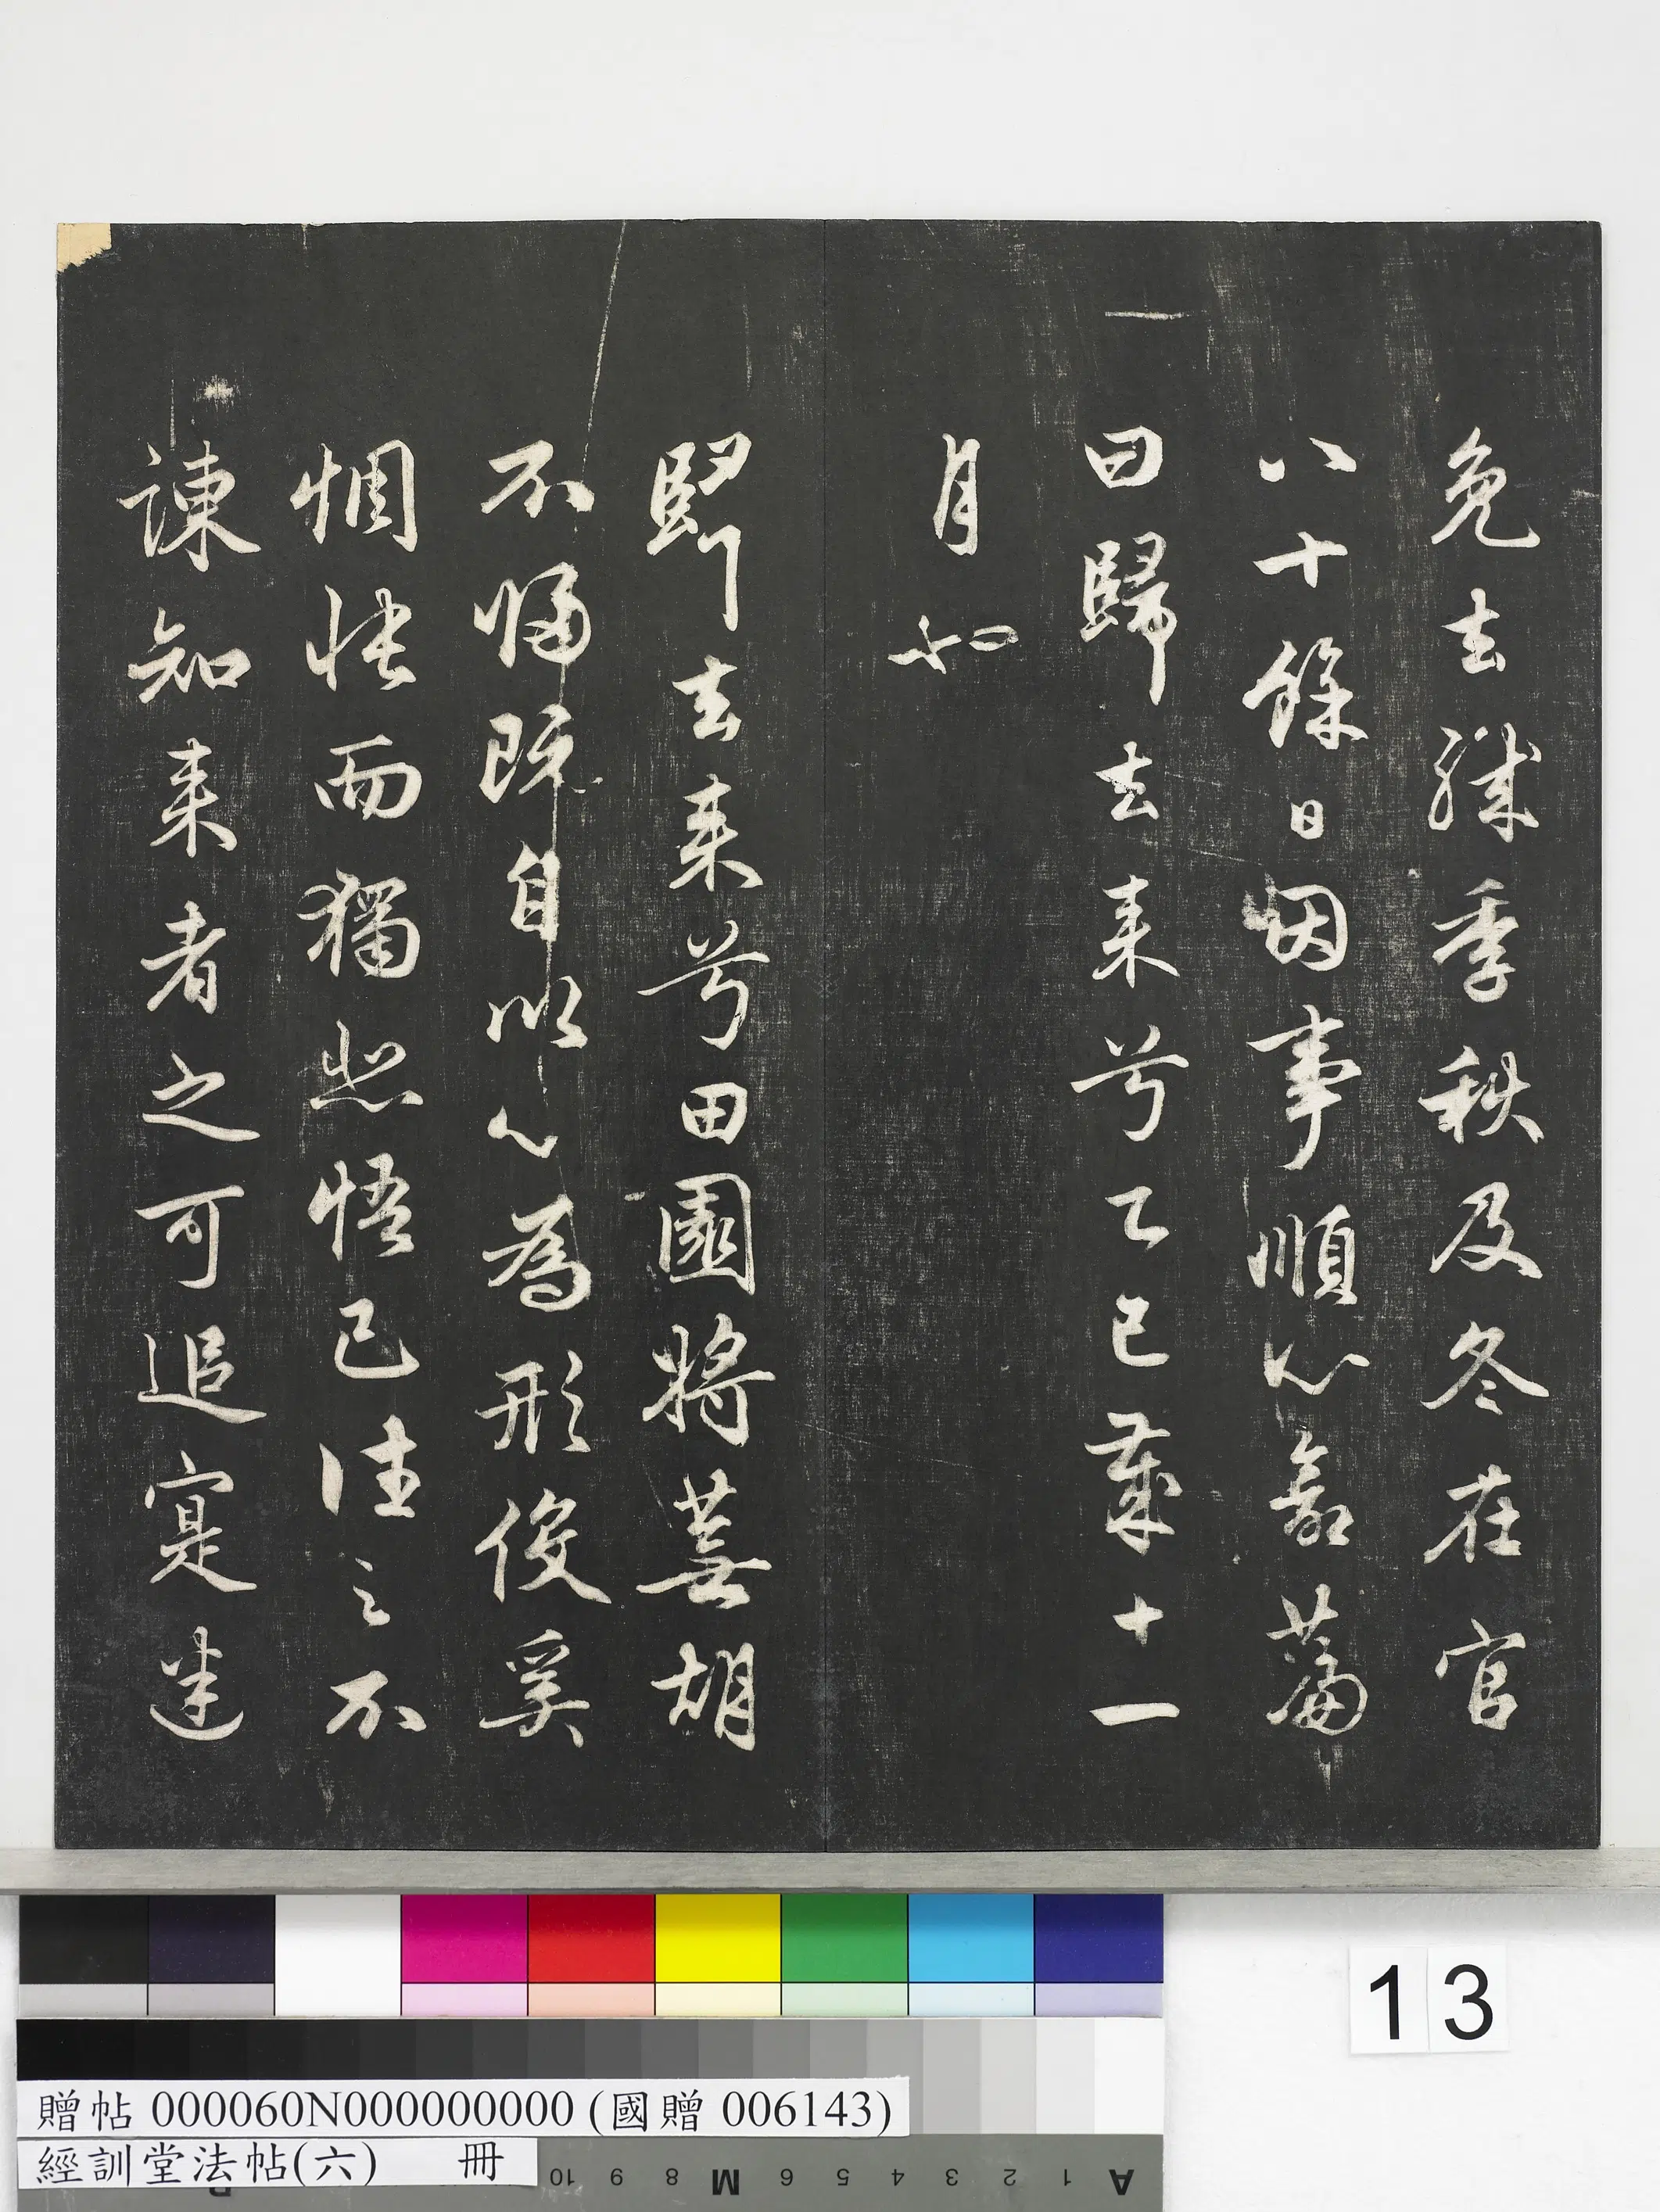 免去職季秩及冬在官
八十餘日因事順心命篇
曰歸去来兮乙巳歲十一
月也
歸去来兮田園將蕪胡
不歸既自以心為形役奚
惆悵而獨悲悟已往之不
諫知来者之可追寔迷
13
贈帖 000060N000000000 (國贈 006143)
經訓堂法帖(六) 冊
10 9 8 M 6 5 4 3 2 1 A